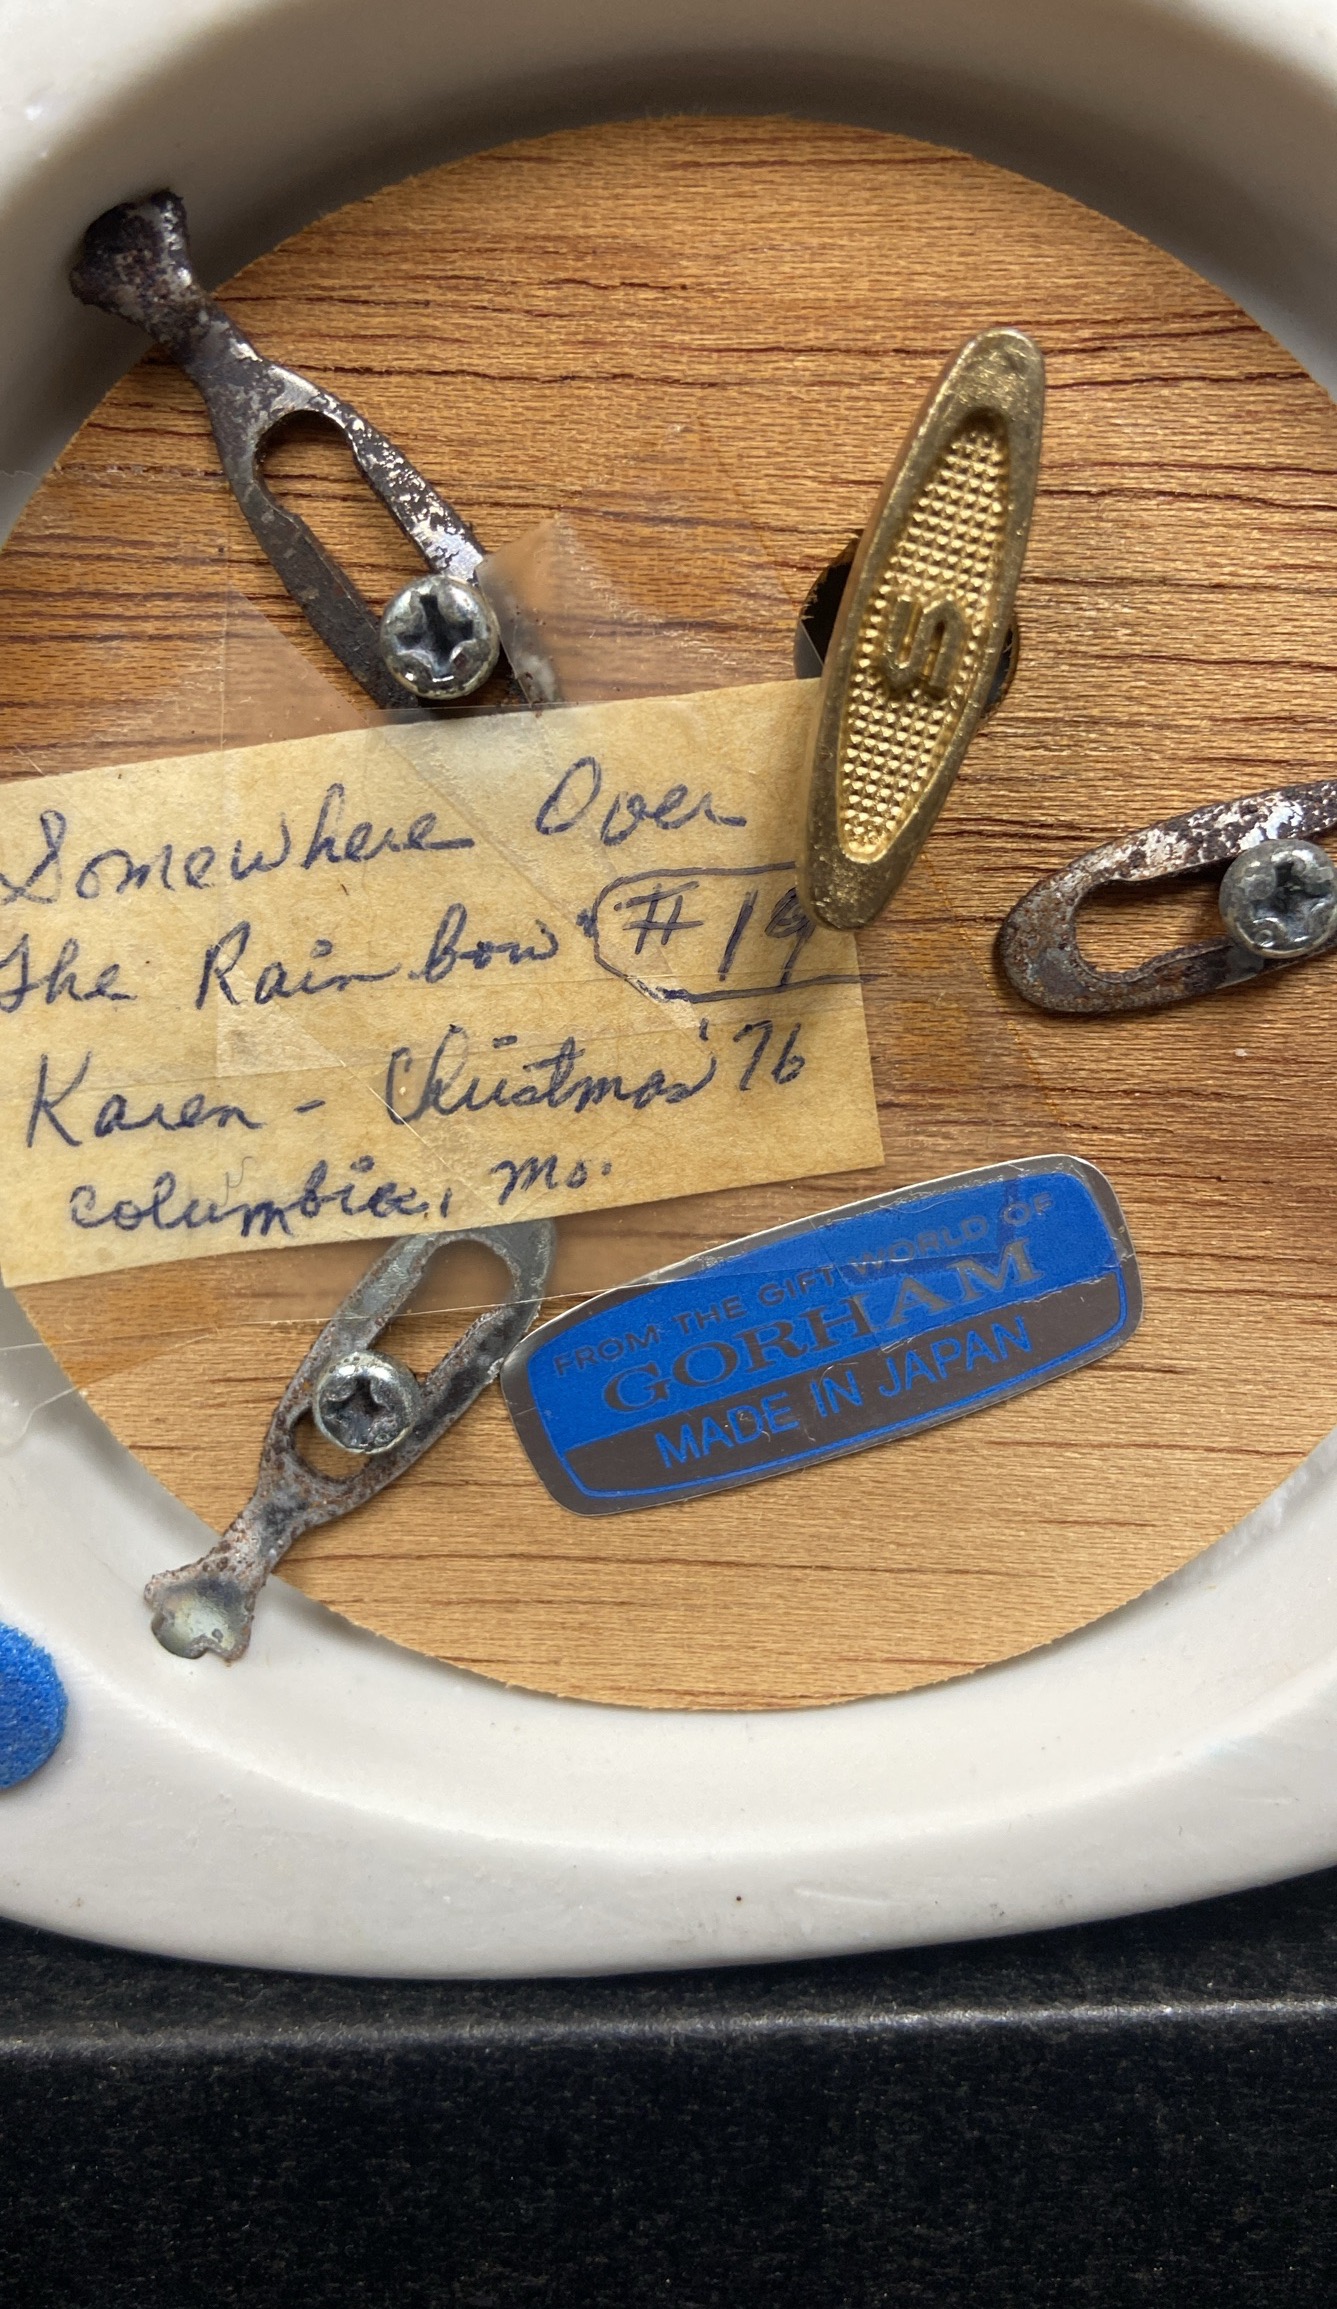 S
Somewhere Over
The Rainbow #19
Karen - Christmas '76
Columbia, Mo.
FROM THE GIFT WORLD OF
GORHAM
MADE IN JAPAN